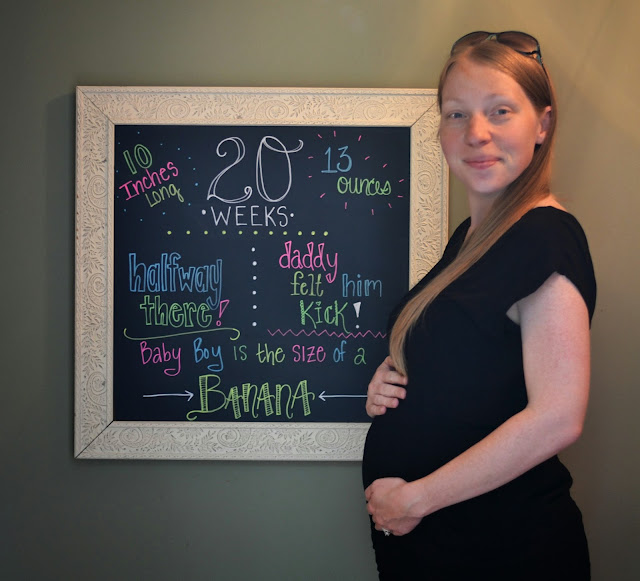 10
Inches
Long
20
WEEKS
13
ounces
halfway
there!
daddy
felt him
Kick!
Baby Boy is the size of a
BANANA